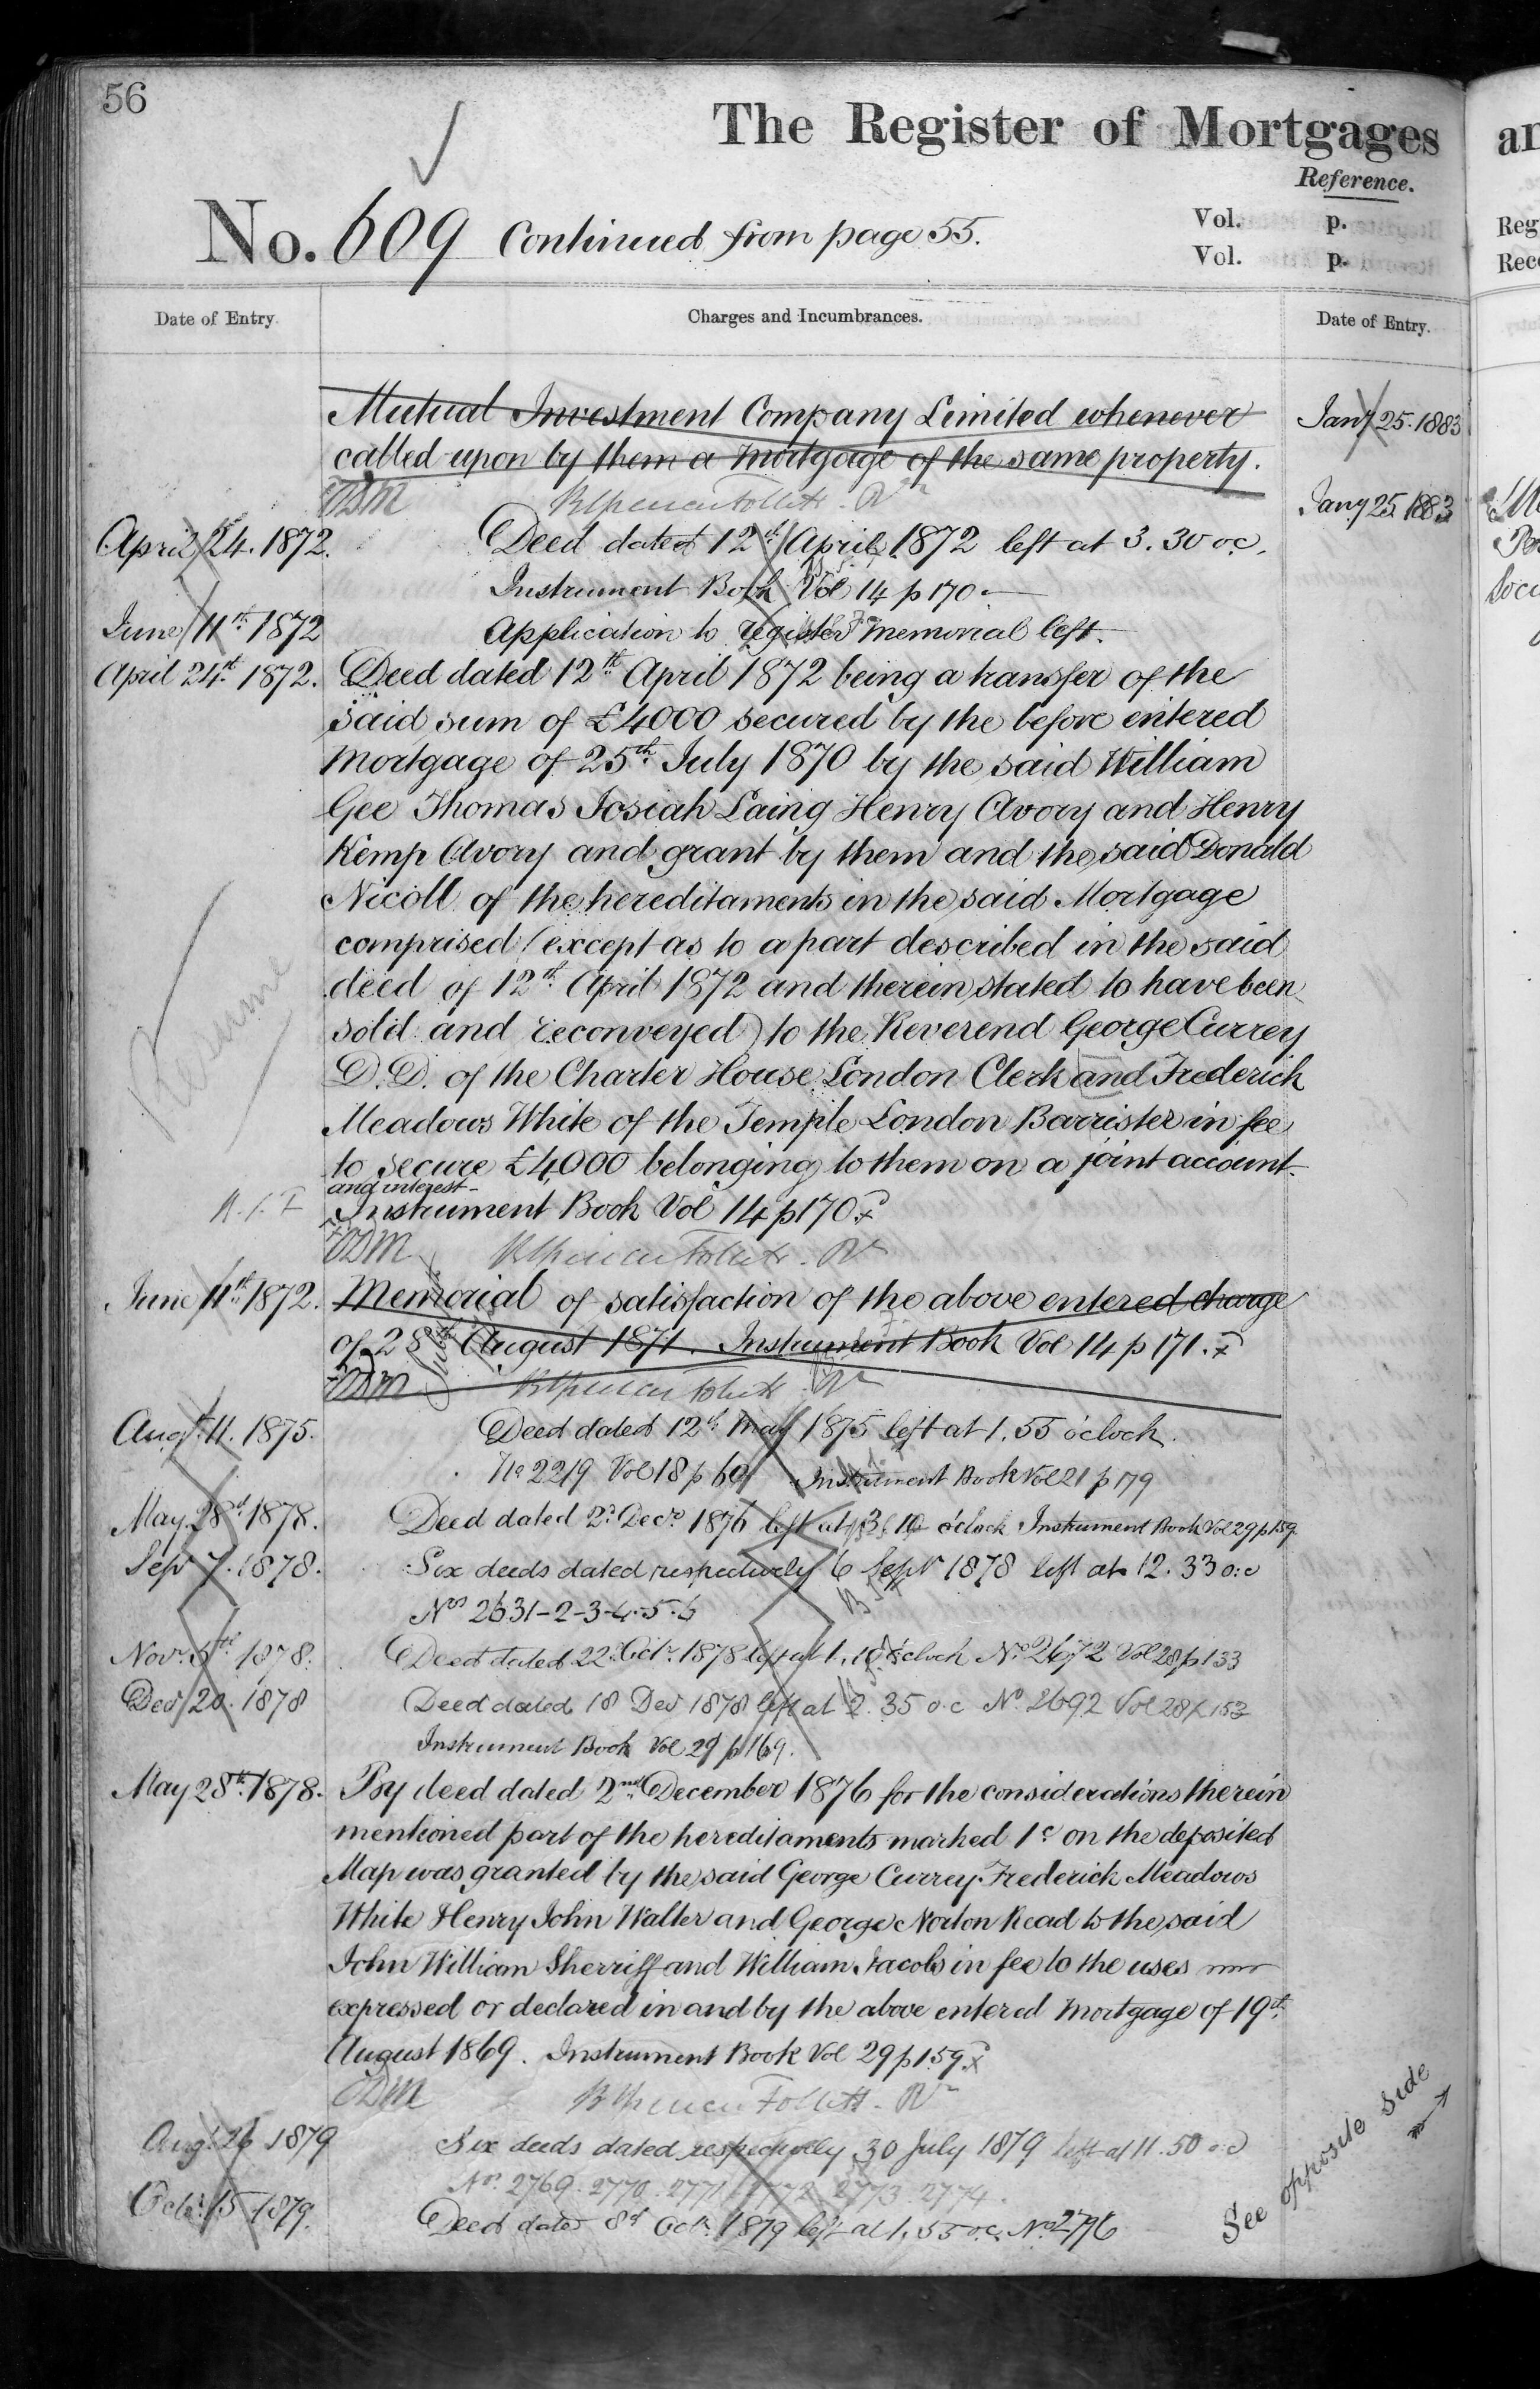 56
The Register of Mortgages
Reference.
No. 609 Continued from page 55.
Vol. p.
Vol. p.
Date of Entry
Charges and Incumbrances.
Date of Entry.
Mutual Investment Company Limited whenever
Jany 25. 1883
called upon by them a mortgage of the same property.
Jany 25. 1883
April 24. 1872. Deed dated 12th April 1872 left at 3.30 o.c.
Instrument Book Vol 14 p 170
June 11th 1872 Application to register memorial left.
April 24th 1872. Deed dated 12th April 1872 being a transfer of the
said sum of £4000 secured by the before entered
Mortgage of 25th July 1870 by the said William
Gee Thomas Josiah Laing Henry Avory and Henry
Kemp Avory and grant by them and the said Donald
Nicoll of the hereditaments in the said Mortgage
comprised (except as to a part described in the said
deed of 12th April 1872 and therein stated to have been
sold and reconveyed) to the Reverend George Currey
D.D. of the Charter House London Clerk and Frederick
Meadows White of the Temple London Barrister in fee
to secure £4,000 belonging to them on a joint account
and interest
Instrument Book Vol 14 p 170
June 11th 1872. Memorial of satisfaction of the above entered charge
of 28th August 1871. Instrument Book Vol 14 p 171.
Augt. 11. 1875. Deed dated 12th May 1875 left at 1.55 o'clock.
No 2219 Vol 18 p 60 Instrument Book Vol 21 p 179
May 28th 1878. Deed dated 2d Decr 1876 left at 3.10 o'clock Instrument Book Vol 29 p 159
Sepr 7. 1878. Six deeds dated respectively 6 Sepr 1878 left at 12.33 o.c
Nos 2631-2-3-4-5-6
Novr. 5th 1878. Deed dated 22d Octr. 1878 left at 1.10 o'clock No 2672 Vol 28 p 133
Decr 20. 1878 Deed dated 18 Decr 1878 left at 2.35 o.c No. 2692 Vol 28 p 153
Instrument Book Vol 29 p 169.
May 28th 1878. By deed dated 2nd December 1876 for the considerations therein
mentioned part of the hereditaments marked 1c on the deposited
Map was granted by the said George Currey Frederick Meadows
White Henry John Walter and George Norton Read to the said
John William Sherriff and William Jacobs in fee to the uses
expressed or declared in and by the above entered Mortgage of 19th
August 1869. Instrument Book Vol 29 p 159
Augt. 26 1879 Six deeds dated respectively 30 July 1879 left at 11.50 o.c
Nos. 2769. 2770. 2771. 2772. 2773. 2774.
Octr. 15 1879. Deed dated 8th Octr. 1879 left at 1.55 o.c. No 2796
See opposite side